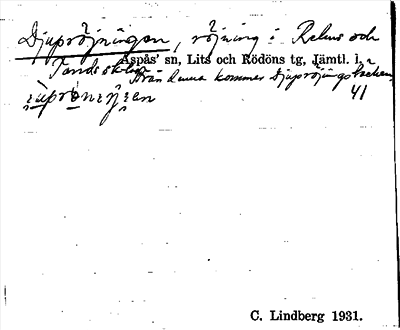 Djupröjningen, röjning i Relus och
Tands skog
Aspås' sn, Lits och Rödöns tg, Jämtl. l.
Från denna kommer Djupröjningsbäcken
41
C. Lindberg 1931.